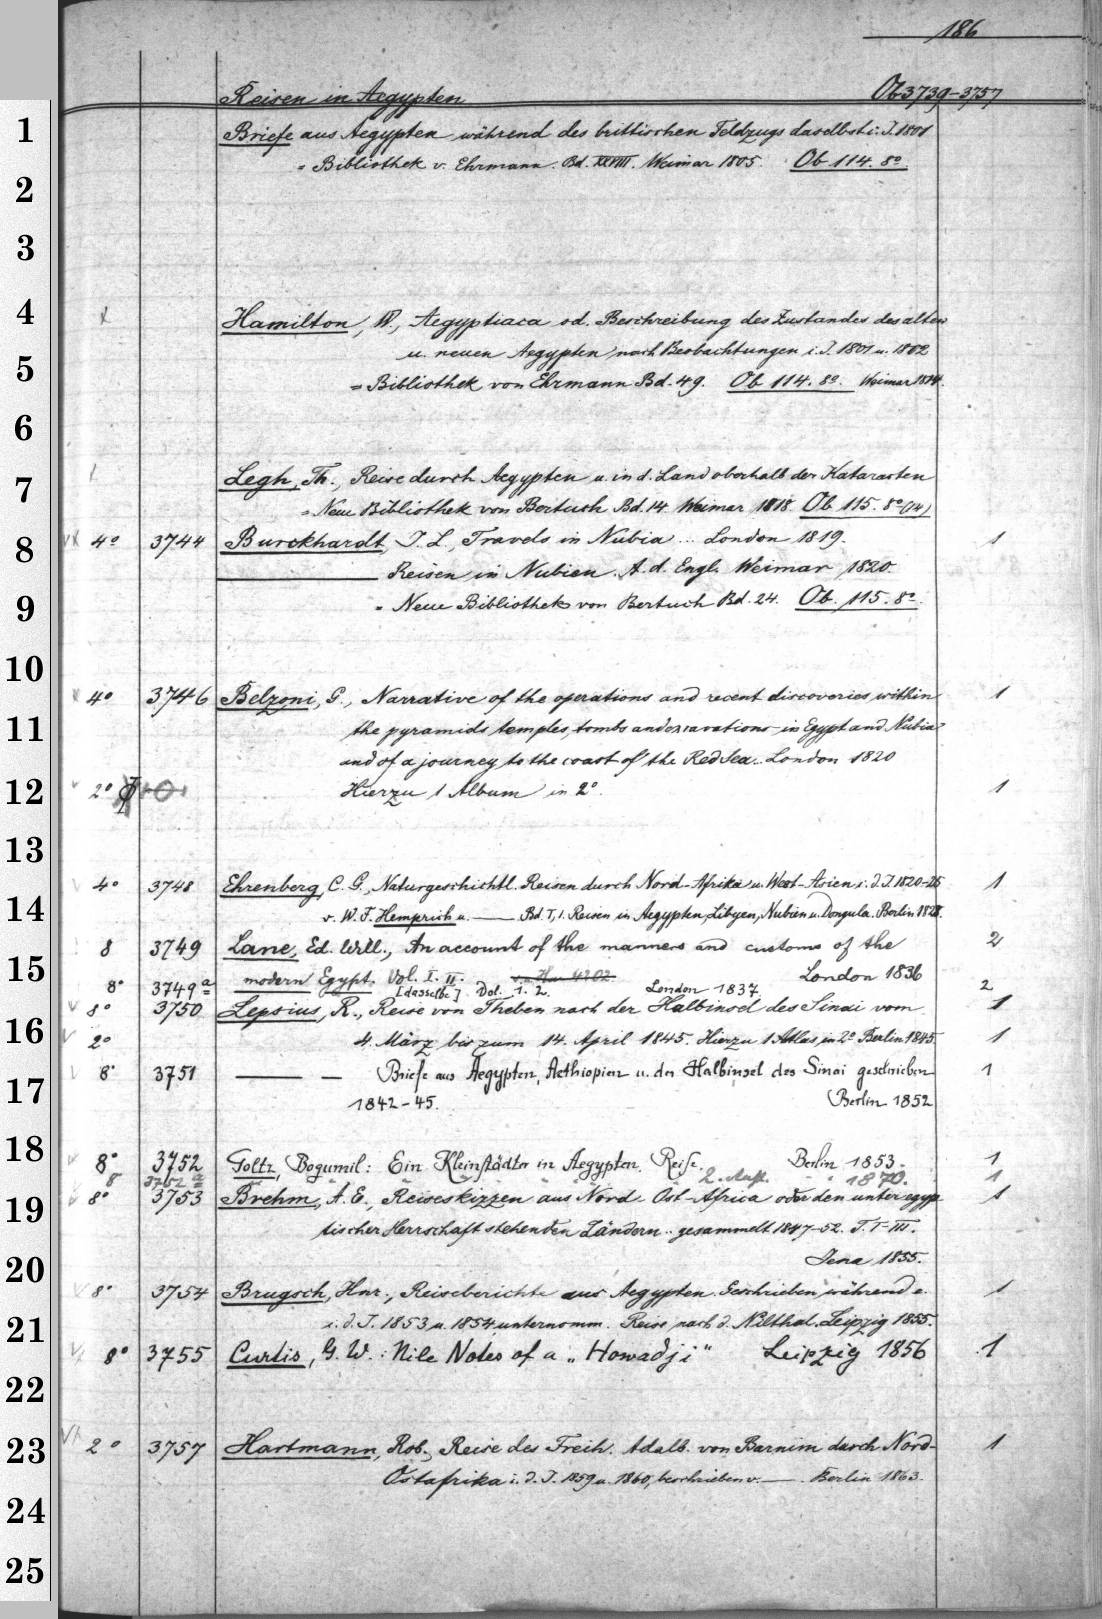 186
Reisen in Aegypten Ob 3739-3757
1 Briefe aus Aegypten während des brittischen Feldzugs daselbst i. J. 1801
= Bibliothek v. Ehrmann. Bd. XXVIII. Weimar 1805. Ob 114. 8°
2
3
4 Hamilton, W., Aegyptiaca od. Beschreibung des Zustandes des alten
u. neuen Aegypten nach Beobachtungen i. J. 1801 u. 1802
5 = Bibliothek von Ehrmann Bd. 49. Ob 114. 8°. Weimar 1814.
6
7 Legh, Th., Reise durch Aegypten u. in d. Land oberhalb der Katarakten
= Neue Bibliothek von Bertuch Bd. 14. Weimar 1818. Ob 115. 8° (14)
8 4° 3744 Burckhardt, J. L., Travels in Nubia ... London 1819. 1
—— Reisen in Nubien. A. d. Engl. Weimar 1820.
9 = Neue Bibliothek von Bertuch Bd. 24. Ob. 115. 8°.
10
4° 3746 Belzoni, G., Narrative of the operations and recent discoveries within 1
11 the pyramids temples, tombs and excavations in Egypt and Nubia
and of a journey to the coast of the Red Sea.. London 1820
12 2° Hierzu 1 Album in 2°. 1
13
4° 3748 Ehrenberg, C. G., Naturgeschichtl. Reisen durch Nord-Afrika u. West-Asien i. d. J. 1820-25 1
14 v. W. F. Hemprich u. —— Bd. I, 1. Reisen in Aegypten, Libyen, Nubien u. Dongula. Berlin 1828.
8 3749 Lane, Ed. Will., An account of the manners and customs of the 2
15 modern Egypt. Vol. I. II. London 1836
8° 3749a [dasselbe] Vol. 1. 2. London 1837 2
8° 3750 Lepsius, R., Reise von Theben nach der Halbinsel des Sinai vom 1
16 2° 4. März bis zum 14. April 1845. Hierzu 1 Atlas in 2° Berlin 1845. 1
8° 3751 —— — Briefe aus Aegypten, Aethiopien u. der Halbinsel des Sinai geschrieben 1
17 1842-45. Berlin 1852
18 8° 3752 Goltz, Bogumil: Ein Kleinstädter in Aegypten. Reise. Berlin 1853. 1
8 3752a " " " " " 2. Aufl. " 1870. 1
19 8° 3753 Brehm, A. E., Reiseskizzen aus Nord-Ost-Africa oder den unter egyp- 1
tischer Herrschaft stehenden Ländern .. gesammelt 1847-52. T. I-III.
20 Jena 1855.
8° 3754 Brugsch, Hnr., Reiseberichte aus Aegypten. Geschrieben während e. 1
21 i. d. J. 1853 u. 1854 unternomm. Reise nach d. Nilthal. Leipzig 1855.
8° 3755 Curtis, G. W.: Nile Notes of a „Howadji" Leipzig 1856 1
22
23 2° 3757 Hartmann, Rob., Reise des Freih. Adalb. von Barnim durch Nord- 1
Ostafrika i. d. J. 1859 u. 1860, beschrieben v. ——. Berlin 1863.
24
25